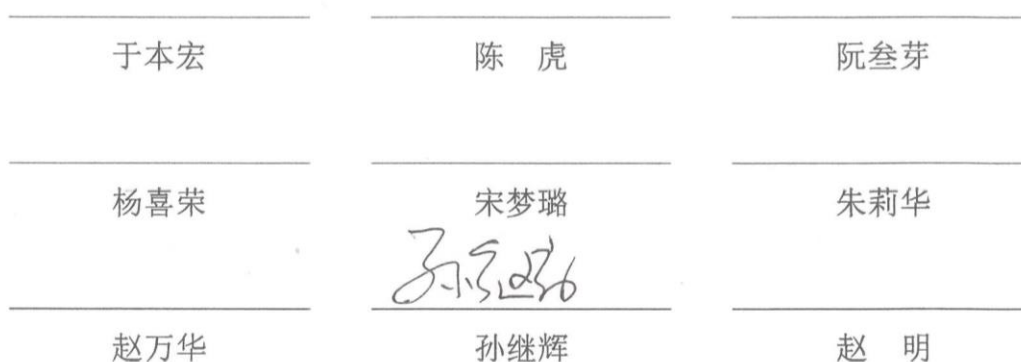 于本宏 陈 虎 阮叁芽
杨喜荣 宋梦璐 朱莉华
赵万华 孙继辉 赵 明